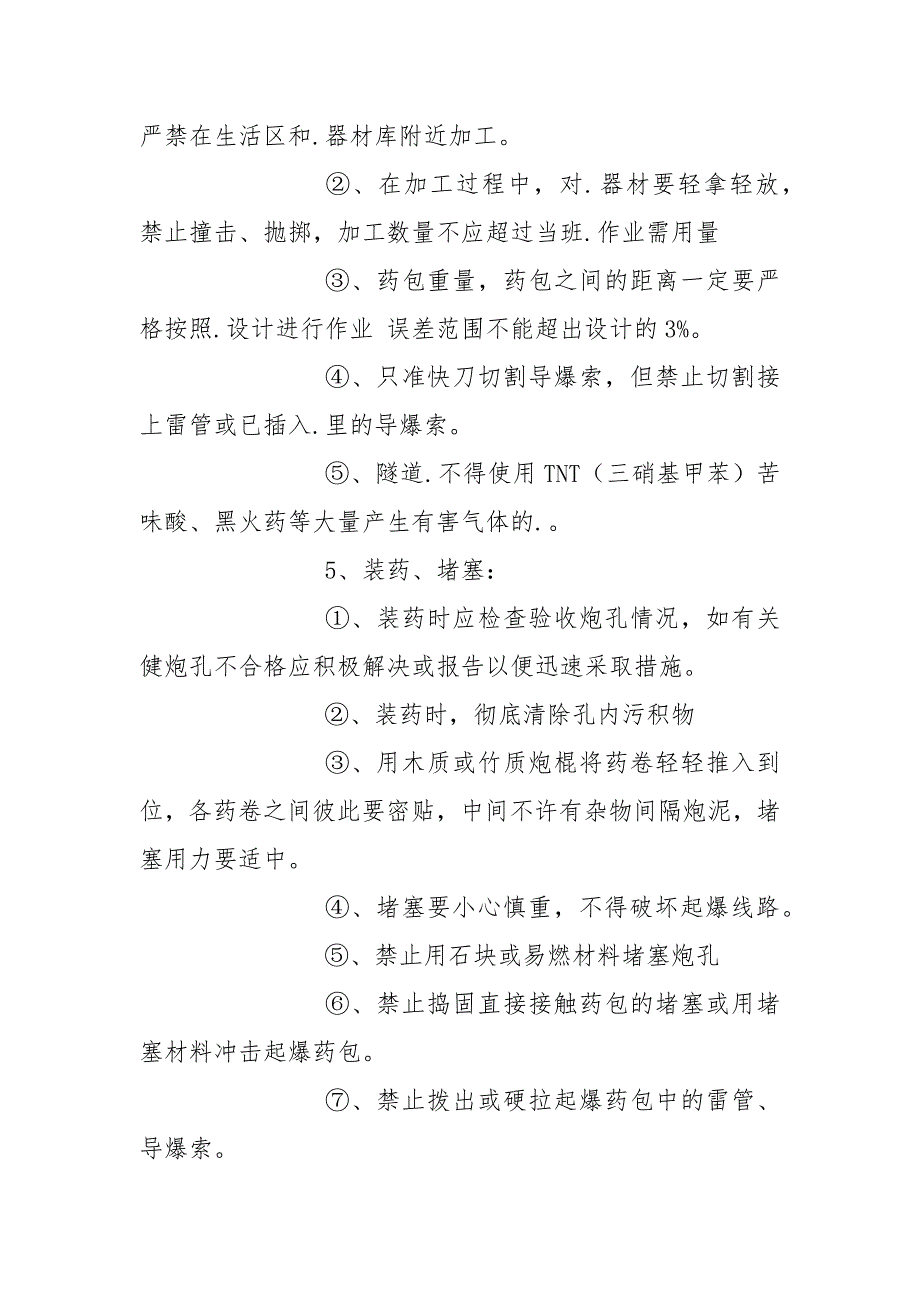 严禁在生活区和.器材库附近加工。
②、在加工过程中，对.器材要轻拿轻放，
禁止撞击、抛掷，加工数量不应超过当班.作业需用量
③、药包重量，药包之间的距离一定要严
格按照.设计进行作业 误差范围不能超出设计的3%。
④、只准快刀切割导爆索，但禁止切割接
上雷管或已插入.里的导爆索。
⑤、隧道.不得使用TNT（三硝基甲苯）苦
味酸、黑火药等大量产生有害气体的.。
5、装药、堵塞：
①、装药时应检查验收炮孔情况，如有关
健炮孔不合格应积极解决或报告以便迅速采取措施。
②、装药时，彻底清除孔内污积物
③、用木质或竹质炮棍将药卷轻轻推入到
位，各药卷之间彼此要密贴，中间不许有杂物间隔炮泥，堵
塞用力要适中。
④、堵塞要小心慎重，不得破坏起爆线路。
⑤、禁止用石块或易燃材料堵塞炮孔
⑥、禁止捣固直接接触药包的堵塞或用堵
塞材料冲击起爆药包。
⑦、禁止拨出或硬拉起爆药包中的雷管、
导爆索。